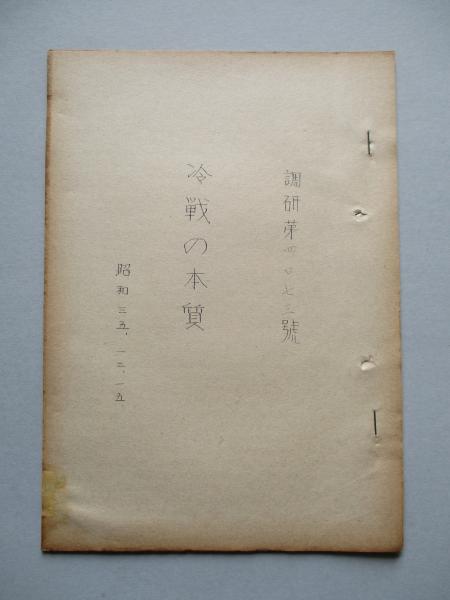 調研第四〇七三號
冷戦の本質
昭和三五、一二、一五